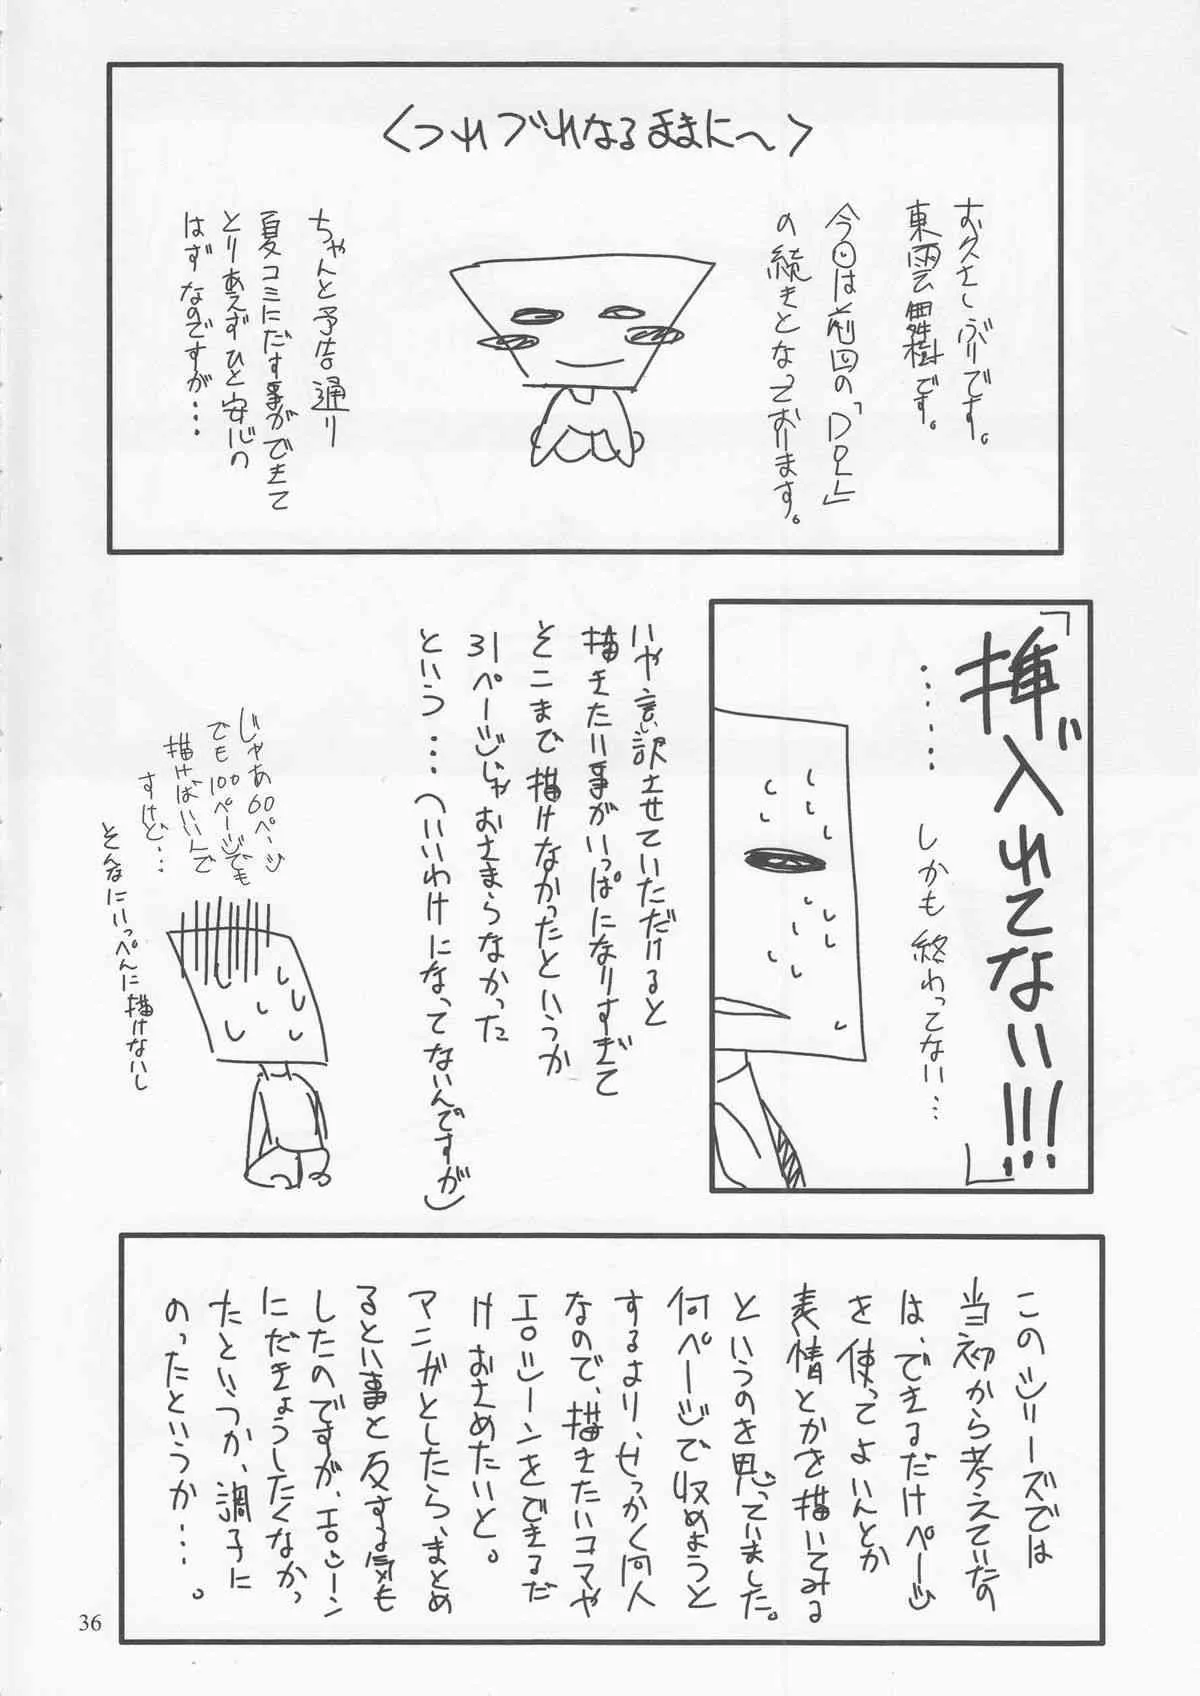 〈つれづれなるままに〜〉
お久しぶりです。
東雲舞樹です。
今回は前回の「DOLL」
の続きとなっております。
ちゃんと予告通り
夏コミにだす事ができて
とりあえずひと安心の
はずなのですが・・・
「挿入れてない!!!」
・・・・・・しかも終わってない・・・
いや、言い訳させていただけると
描きたい事がいっぱになりすぎて
そこまで描けなかったというか
31ページじゃおさまらなかった
という・・・(いいわけになってないんですが)
じゃあ60ページ
でも100ページでも
描けばいいんで
すけど・・・
そんなにいっぺんに描けないし
このシリーズでは
当初から考えていたの
は、できるだけページ
を使ってよいんとか
表情とかを描いてみる
というのを思っていました。
何ページで収めようと
するより、せっかく同人
なので、描きたいコマや
エロシーンをできるだ
けおさめたいと。
マンガとしたら、まとめ
るという事と反する気も
したのですが、エロシーン
にだきょうしたくなかっ
たといつか、調子に
のったというか・・・。
36